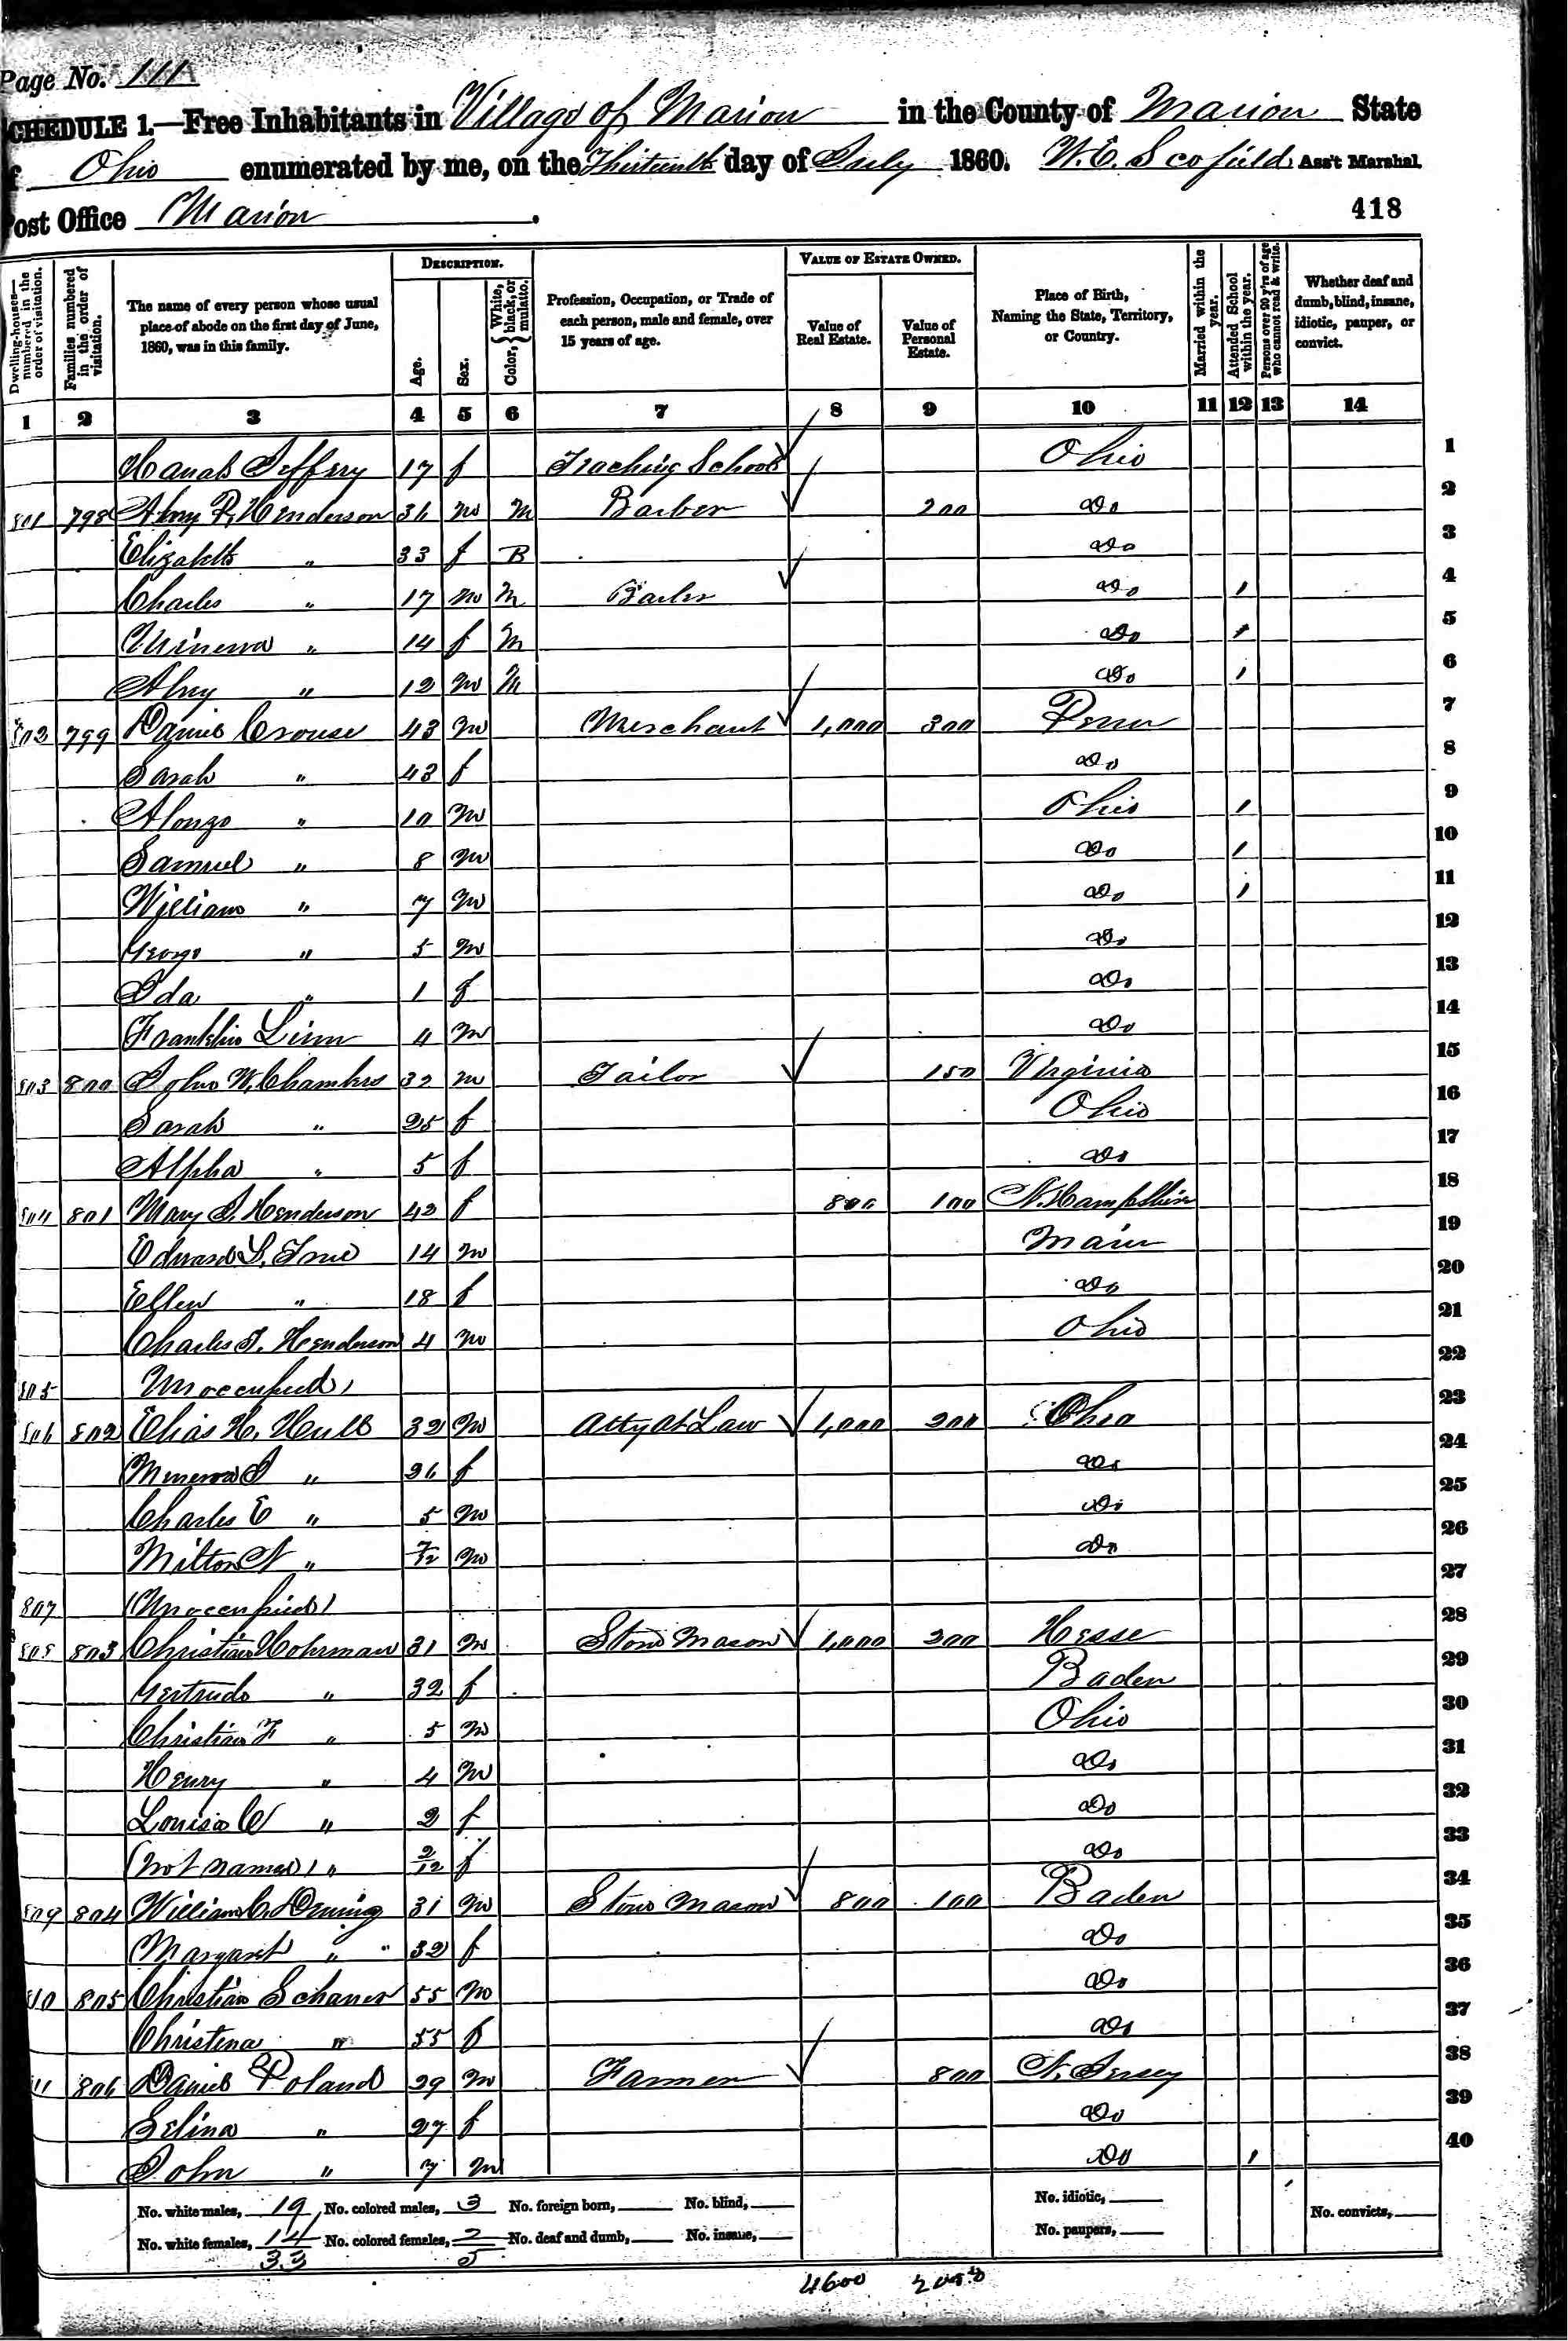 Page No. 111
SCHEDULE 1.—Free Inhabitants in Village of Marion in the County of Marion State
of Ohio enumerated by me, on the Thirteenth day of July 1860. W. E. Scofield Ass't Marshal.
Post Office Marion.
418
Dwelling-houses—numbered in the order of visitation.
Families numbered in the order of visitation.
The name of every person whose usual place of abode on the first day of June, 1860, was in this family.
DESCRIPTION.
Age.
Sex.
Color, White, black, or mulatto.
Profession, Occupation, or Trade of each person, male and female, over 15 years of age.
VALUE OF ESTATE OWNED.
Value of Real Estate.
Value of Personal Estate.
Place of Birth, Naming the State, Territory, or Country.
Married within the year.
Attended School within the year.
Persons over 20 y'rs of age who cannot read & write.
Whether deaf and dumb, blind, insane, idiotic, pauper, or convict.
1 2 3 4 5 6 7 8 9 10 11 12 13 14
Hanah Jeffery 17 f Teaching School Ohio 1
801 798 P. Henderson 36 m M Barber 200 Do 2
Elizabeth " 33 f B Do 3
Charles " 17 m M Barber Do / 4
Minerva " 14 f M Do / 5
" 12 m M Do / 6
802 799 Daniel Crouse 43 m Merchant 1,000 300 Penn 7
Sarah " 43 f Do 8
Alonzo " 10 m Ohio / 9
Samuel " 8 m Do / 10
William " 7 m Do / 11
George " 5 m Do 12
Ida " 1 f Do 13
Franklin Linn 4 m Do 14
803 800 John W. Chambers 32 m Tailor 150 Virginia 15
Sarah " 25 f Ohio 16
Alpha " 5 f Do 17
804 801 Mary J. Henderson 42 f 800 100 N. Hampshire 18
Edward L. True 14 m Main 19
Ellen " 18 f Do 20
Charles T. Henderson 4 m Ohio 21
805 Unoccupied 22
806 802 Elias H. Hull 32 m Atty At Law 1,000 200 Ohio 23
Minerva J " 26 f Do 24
Charles E " 5 m Do 25
Milton N " 7/12 m Do 26
807 (Unoccupied) 27
808 803 Christian Hohrman 31 m Stone Mason 1,000 200 Hesse 28
Gertrude " 32 f Baden 29
Christian F " 5 m Ohio 30
Henry " 4 m Do 31
Louisa C " 2 f Do 32
(not named) " 2/12 f Do 33
809 804 William C. 31 m Stone Mason 800 100 Baden 34
Margaret " " 32 f Do 35
810 805 Christian Schaner 55 m Do 36
Christena " 55 f Do 37
11 806 Daniel Poland 29 m Farmer 800 N. Jersey 38
Selina " 27 f Do 39
John " 7 m Do / 40
No. white males, 19 No. colored males, 3 No. foreign born, No. blind, No. idiotic, No. convicts,
No. white females, 14 No. colored females, 2 No. deaf and dumb, No. insane, No. paupers,
33 5
4600